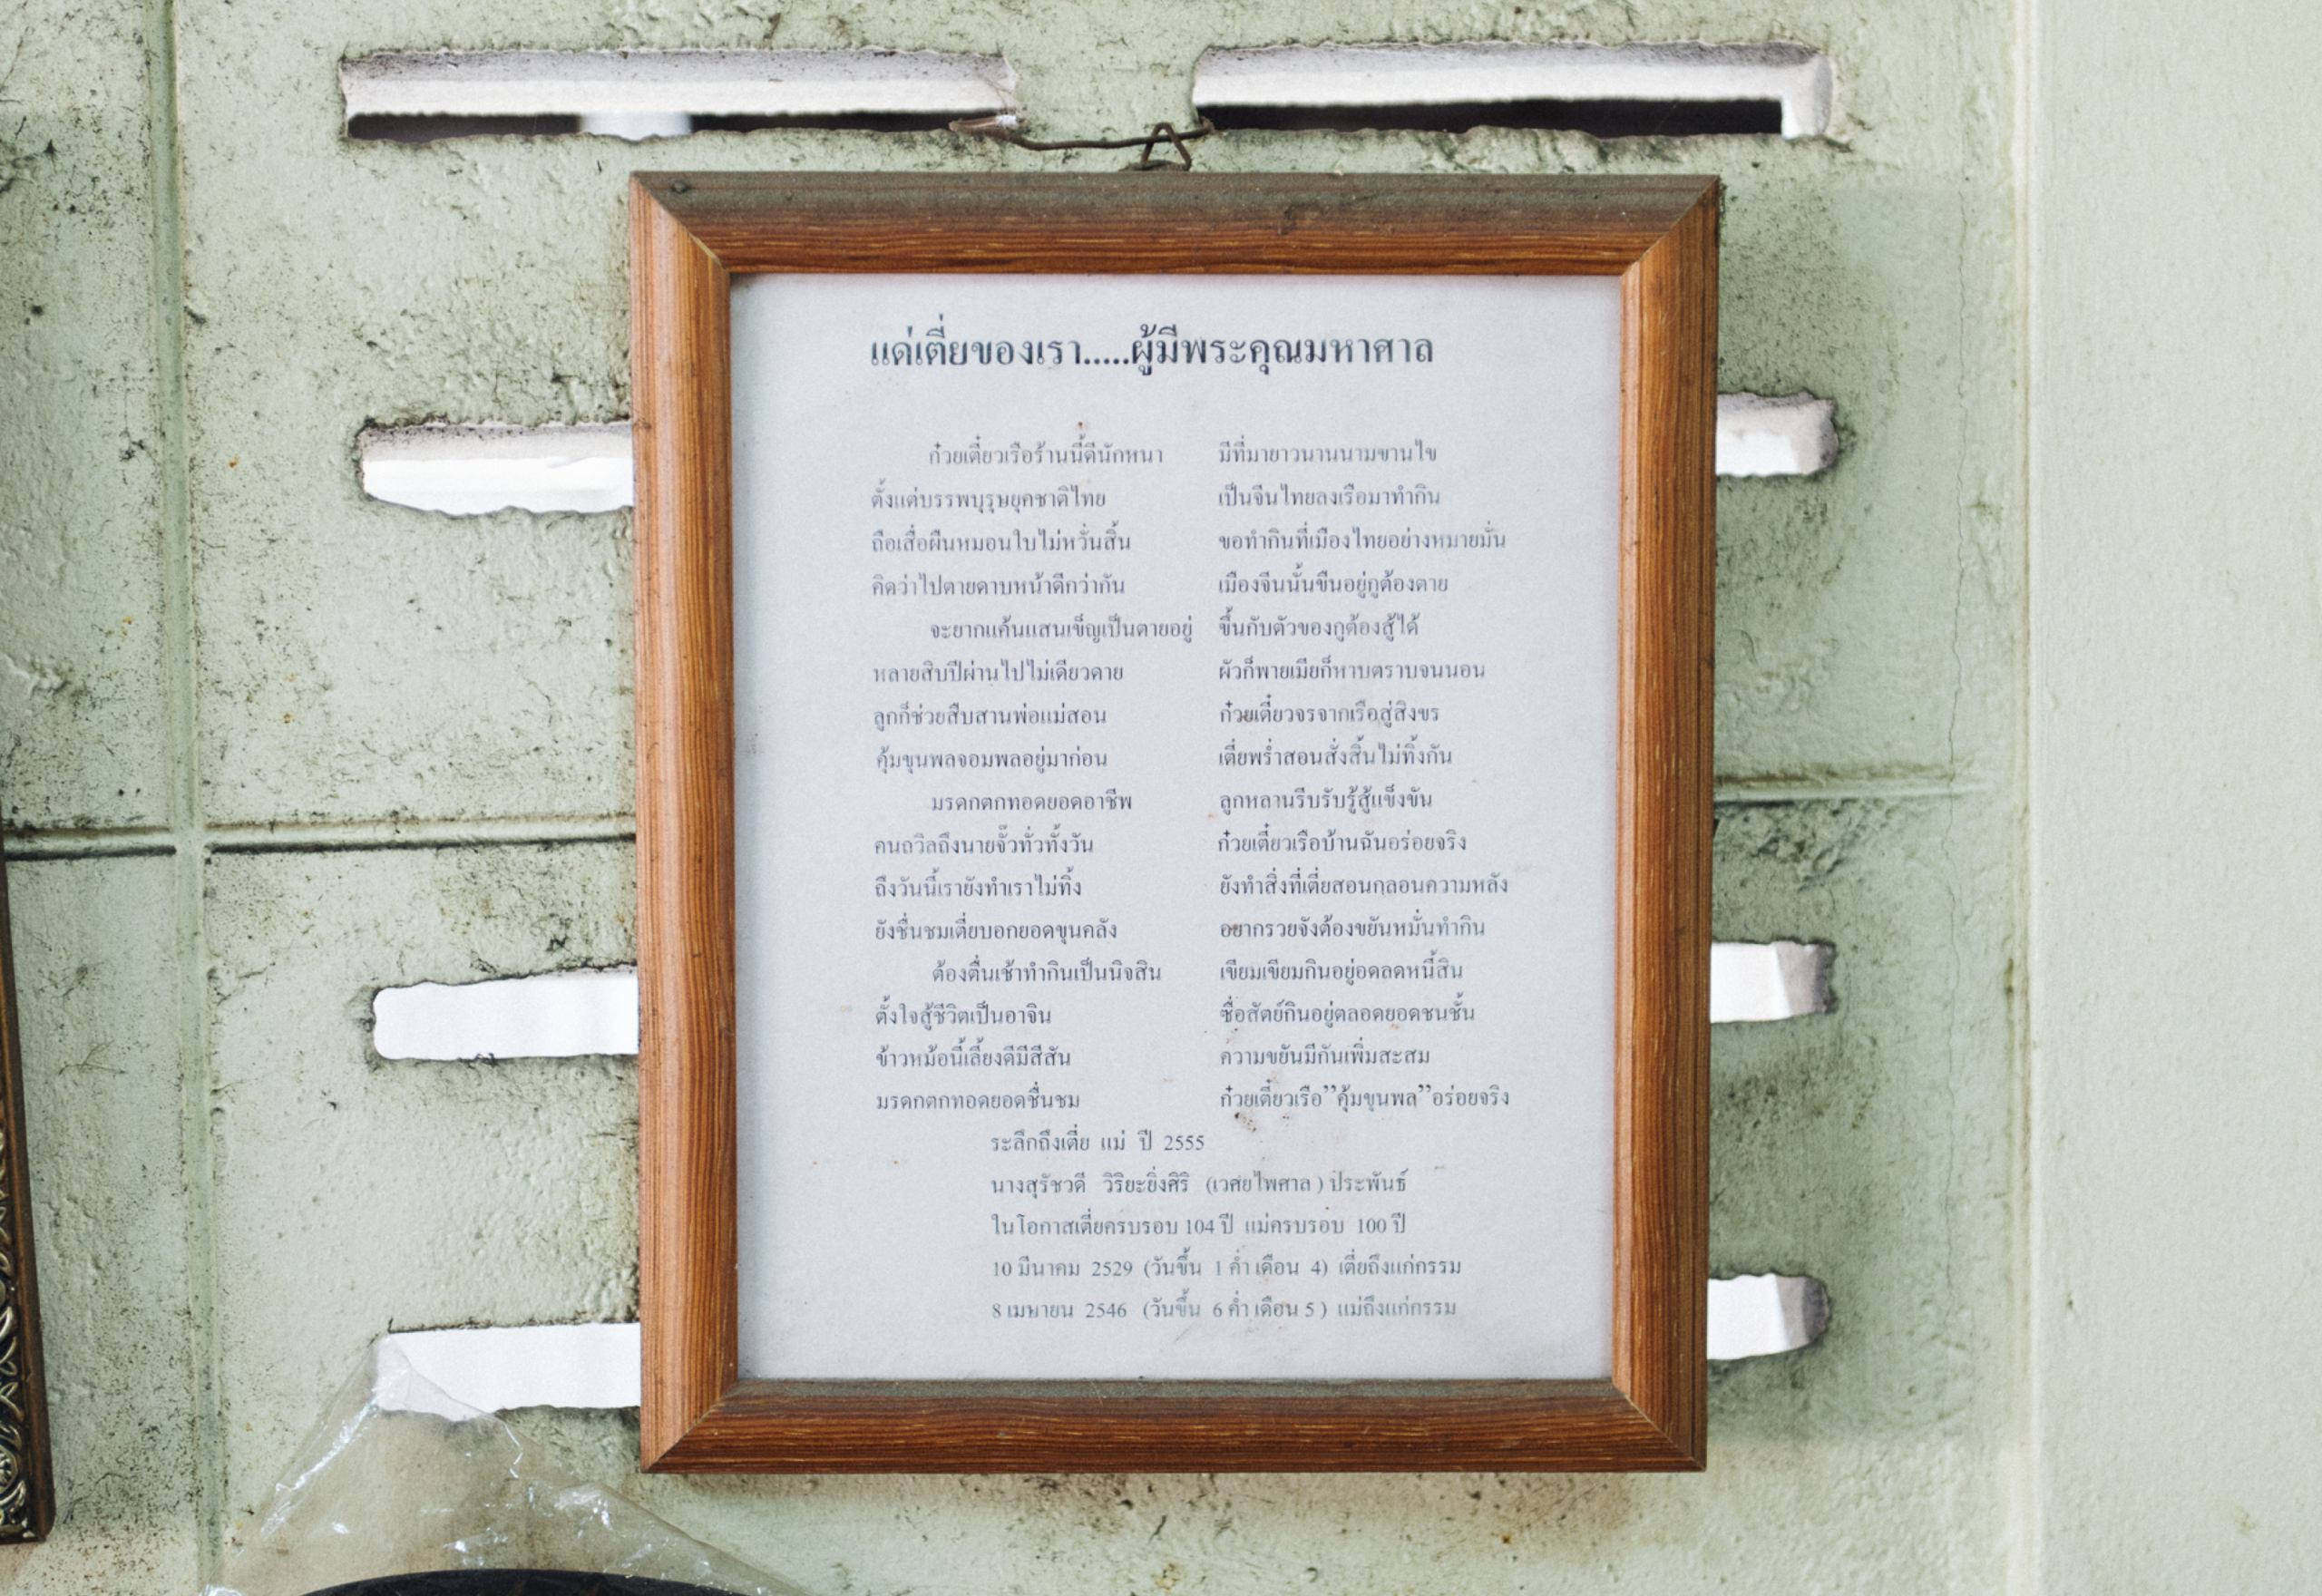 แด่เตี่ยของเรา.....ผู้มีพระคุณมหาศาล
ก๋วยเตี๋ยวเรือร้านนี้ดีนักหนา มีที่มายาวนานนามขานไข
ตั้งแต่บรรพบุรุษยุคชาติไทย เป็นจีนไทยลงเรือมาทำกิน
ถือเสื่อผืนหมอนใบไม่หวั่นสิ้น ขอทำกินที่เมืองไทยอย่างหมายมั่น
คิดว่าไปตายดาบหน้าดีกว่ากัน เมืองจีนนั้นขืนอยู่กูต้องตาย
จะยากแค้นแสนเข็ญเป็นตายอยู่ ขึ้นกับตัวของกูต้องสู้ได้
หลายสิบปีผ่านไปไม่เดียวดาย ผัวก็พายเมียก็หาบตราบจนนอน
ลูกก็ช่วยสืบสานพ่อแม่สอน ก๋วยเตี๋ยวจรจากเรือสู่สิงขร
คุ้มขุนพลจอมพลอยู่มาก่อน เตี่ยพร่ำสอนสั่งสิ้นไม่ทิ้งกัน
มรดกตกทอดยอดอาชีพ ลูกหลานรีบรับรู้สู้แข็งขัน
คนถวิลถึงนายจั๊วทั่วทั้งวัน ก๋วยเตี๋ยวเรือบ้านฉันอร่อยจริง
ถึงวันนี้เรายังทำเราไม่ทิ้ง ยังทำสิ่งที่เตี่ยสอนกลอนความหลัง
ยังชื่นชมเตี่ยบอกยอดขุนคลัง อยากรวยจังต้องขยันหมั่นทำกิน
ต้องตื่นเช้าทำกินเป็นนิจสิน เขียมเขียมกินอยู่อดลดหนี้สิน
ตั้งใจสู้ชีวิตเป็นอาจิน ซื่อสัตย์กินอยู่ตลอดยอดชนชั้น
ข้าวหม้อนี้เลี้ยงดีมีสีสัน ความขยันมีกันเพิ่มสะสม
มรดกตกทอดยอดชื่นชม ก๋วยเตี๋ยวเรือ”คุ้มขุนพล”อร่อยจริง
ระลึกถึงเตี่ย แม่ ปี 2555
นางสุรัชวดี วิริยะยิ่งศิริ (เวศยไพศาล ) ประพันธ์
ในโอกาสเตี่ยครบรอบ 104 ปี แม่ครบรอบ 100 ปี
10 มีนาคม 2529 (วันขึ้น 1 ค่ำ เดือน 4) เตี่ยถึงแก่กรรม
8 เมษายน 2546 (วันขึ้น 6 ค่ำ เดือน 5 ) แม่ถึงแก่กรรม